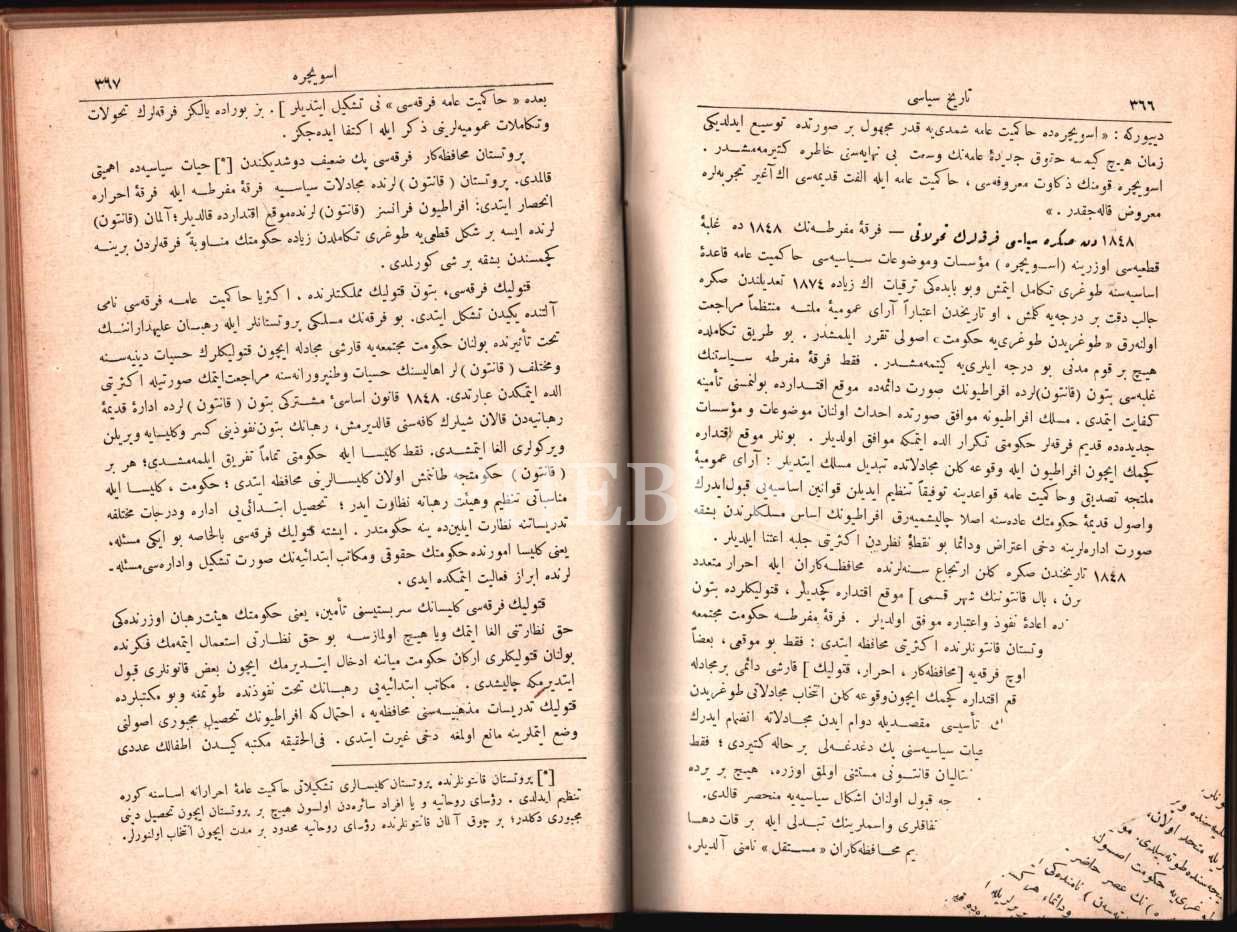 ٣٦٦
تاريخ سياسى
دييوركه : « اسويچره‌ده حاكميت عامه شمدى‌يه قدر مجهول بر صورتده توسيع ايدلديكى
زمان هيچ كيمسه حقوق جديدۀ عامه‌نك وسعت بى نهايه‌سنى خاطره كتيرمه‌مشدر .
اسويچره قومنك ذكاوت معروفه‌سى ، حاكميت عامه ايله الفت قديمه‌سى اك آغير تجربه‌لره
معروض قاله‌جقدر . »
١٨٤٨ دن صكره سياسى فرقه‌لرك تحولاتى — فرقۀ مفرطه‌نك ١٨٤٨ ده غلبۀ
قطعيه‌سى اوزرينه ( اسويچره ) مؤسسات وموضوعات سياسيه‌سى حاكميت عامه قاعدۀ
اساسيه‌سنه طوغرى تكامل ايتمش وبو بابده‌كى ترقيات اك زياده ١٨٧٤ تعديلندن صكره
جالب دقت بر درجه‌يه كلمش ، او تاريخدن اعتباراً آراى عموميۀ ملته منتظماً مراجعت
اولنه‌رق « طوغريدن طوغرى‌يه حكومت » اصولى تقرر ايلمشدر . بو طريق تكاملده
هيچ بر قوم مدنى بو درجه ايلرى‌يه كيتمه‌مشدر . فقط فرقۀ مفرطه سياستنك
غلبه‌سى بتون (قانتون)لرده افراطيونك صورت دائمه‌ده موقع اقتدارده بولنمسنى تأمينه
كفايت ايتمدى . مسلك افراطيونه موافق صورتده احداث اولنان موضوعات و مؤسسات
جديده‌ده قديم فرقه‌لر حكومتى تكرار الده ايتمكه موافق اولديلر . بونلر موقع اقتداره
كچمك ايچون افراطيون ايله وقوعه كلن مجادلاتده تبديل مسلك ايتديلر : آراى عموميۀ
ملتجه تصديق وحاكميت عامه قواعدينه توفيقاً تنظيم ايديلن قوانين اساسيه‌يى قبول‌ايدرك
واصول قديمۀ حكومتك عاده‌سنه اصلا چاليشميه‌رق افراطيونك اساس مسلكلرندن بشقه
صورت اداره‌لرينه دخى اعتراض ودائما بو نقطۀ نظردن اكثريتى جلبه اعتنا ايلديلر .
١٨٤٨ تاريخندن صكره كلن ارتجاع سنه‌لرنده محافظه‌كاران ايله احرار متعدد
برن ، بال قانتوننك شهر قسمى ] موقع اقتداره كچديلر ، قتوليكلرده بتون
ره اعادۀ نفوذ واعتباره موفق اولديلر . فرقۀ مفرطه حكومت مجتمعه
وتستان قانتونلرنده اكثريتى محافظه ايتدى : فقط بو موقعى ، بعضاً
اوچ فرقه‌يه [محافظه‌كار ، احرار، قتوليك ] قارشى دائمى بر مجادله
قع اقتداره كچمك ايچون‌وقوعه كلن انتخاب مجادلاتى طوغريدن
تأسيسى مقصديله دوام ايدن مجادلاته انضمام ايدرك
يات سياسيه‌سنى پك دغدغه‌لى بر حاله كتيردى ؛ فقط
يتاليان قانتونى مستثنى اولمق اوزره، هيچ بر يرده
جه قبول اولنان اشكال سياسيه‌يه منحصر قالدى.
تفاقلرى واسملرينك تبدلى ايله بر قات دها
يم محافظه‌كاران « مستقل » نامنى آلديلر،
٣٦٧
اسويچره
بعده « حاكميت عامه فرقه‌سى » نى تشكيل ايتديلر ] . بز بوراده يالكز فرقه‌لرك تحولات
وتكاملات عموميه‌لرينى ذكر ايله اكتفا ايده‌جكز .
پروتستان محافظه‌كار فرقه‌سى پك ضعيف دوشديكندن [*] حيات سياسيه‌ده اهميتى
قالمدى. پروتستان ( قانتون ) لرنده مجادلات سياسيه فرقۀ مفرطه ايله فرقۀ احراره
انحصار ايتدى: افراطيون فرانسز (قانتون) لرنده‌موقع اقتدارده قالديلر؛ آلمان (قانتون)
لرنده ايسه بر شكل قطعى‌يه طوغرى تكاملدن زياده حكومتك مناوبةً فرقه‌لردن برينه
كچمسندن بشقه بر شى كورلمدى .
قتوليك فرقه‌سى، بتون قتوليك مملكتلرنده . اكثريا حاكميت عامه فرقه‌سى نامى
آلتنده يكيدن تشكل ايتدى. بو فرقه‌نك مسلكى پروتستانلر ايله رهبان عليهدارانــنك
تحت تأثيرنده بولنان حكومت مجتمعه‌يه قارشى مجادله ايچون قتوليكلرك حسيات دينيه‌سنه
ومختلف ( قانتون ) لر اهاليسنك حسيات وطنپرورانه‌سنه مراجعت‌ايتمك صورتيله اكثريتى
الده ايتمكدن عبارتدى. ١٨٤٨ قانون اساسىء مشتركى بتون ( قانتون ) لرده ادارۀ قديمۀ
رهبانيه‌دن قالان شيلرك كافه‌سنى قالديرمش، رهبانك بتون نفوذينى كسر وكليسايه ويريلن
ويركولرى الغا ايتمشدى. فقط كليسا ايله حكومتى تماماً تفريق ايلمه‌مشدى؛ هر بر
( قانتون ) حكومتجه طانمش اولان كليسالرينى محافظه ايتدى ؛ حكومت ، كليسا ايله
مناسباتى تنظيم وهيئت رهبانه نظاوت ايدر ؛ تحصيل ابتدائى‌يى اداره ودرجات مختلفه
تدريساتنه نظارت ايلين‌ده ينه حكومتدر . ايشته قتوليك فرقه‌سى بالخاصه بو ايكى مسئله،
يعنى كليسا امورنده حكومتك حقوقى ومكاتب ابتدائيه‌نك صورت تشكيل واداره‌سى‌مسئله‌ـ
لرنده ابراز فعاليت ايتمكده ايدى .
قتوليك فرقه‌سى كليسانك سربستيسنى تأمين، يعنى حكومتك هيئت‌رهبان اوزرنده‌كى
حق نظارتنى الغا ايتمك ويا هيچ اولمازسه بو حق نظارتى استعمال ايتمه‌مك فكرنده
بولنان قتوليكلرى اركان حكومت ميانه ادخال ايتديرمك ايچون بعض قانونلرى قبول
ايتديرمكه چاليشدى . مكاتب ابتدائيه‌يى رهبانك تحت نفوذنده طوتمغه وبو مكتبلرده
قتوليك تدريسات مذهبيه‌سنى محافظه‌يه ، احتمال كه افراطيونك تحصيل مجبورى اصولنى
وضع ايتملرينه مانع اولمغه دخى غيرت ايتدى . فى‌الحقيقه مكتبه كيدن اطفالك عددى
[*] پروتستان قانتونلرنده پروتستان كليسالرى تشكيلاتى حاكميت عامۀ احرارانه اساسنه كوره
تنظيم ايدلدى . رؤساى روحانيه و يا افراد سائره‌دن اولسون هيچ بر پروتستان ايچون تحصيل دينى
مجبورى دكلدر؛ بر چوق آلمان قانتونلرنده رؤساى روحانيه محدود بر مدت ايچون انتخاب اولنورلر.